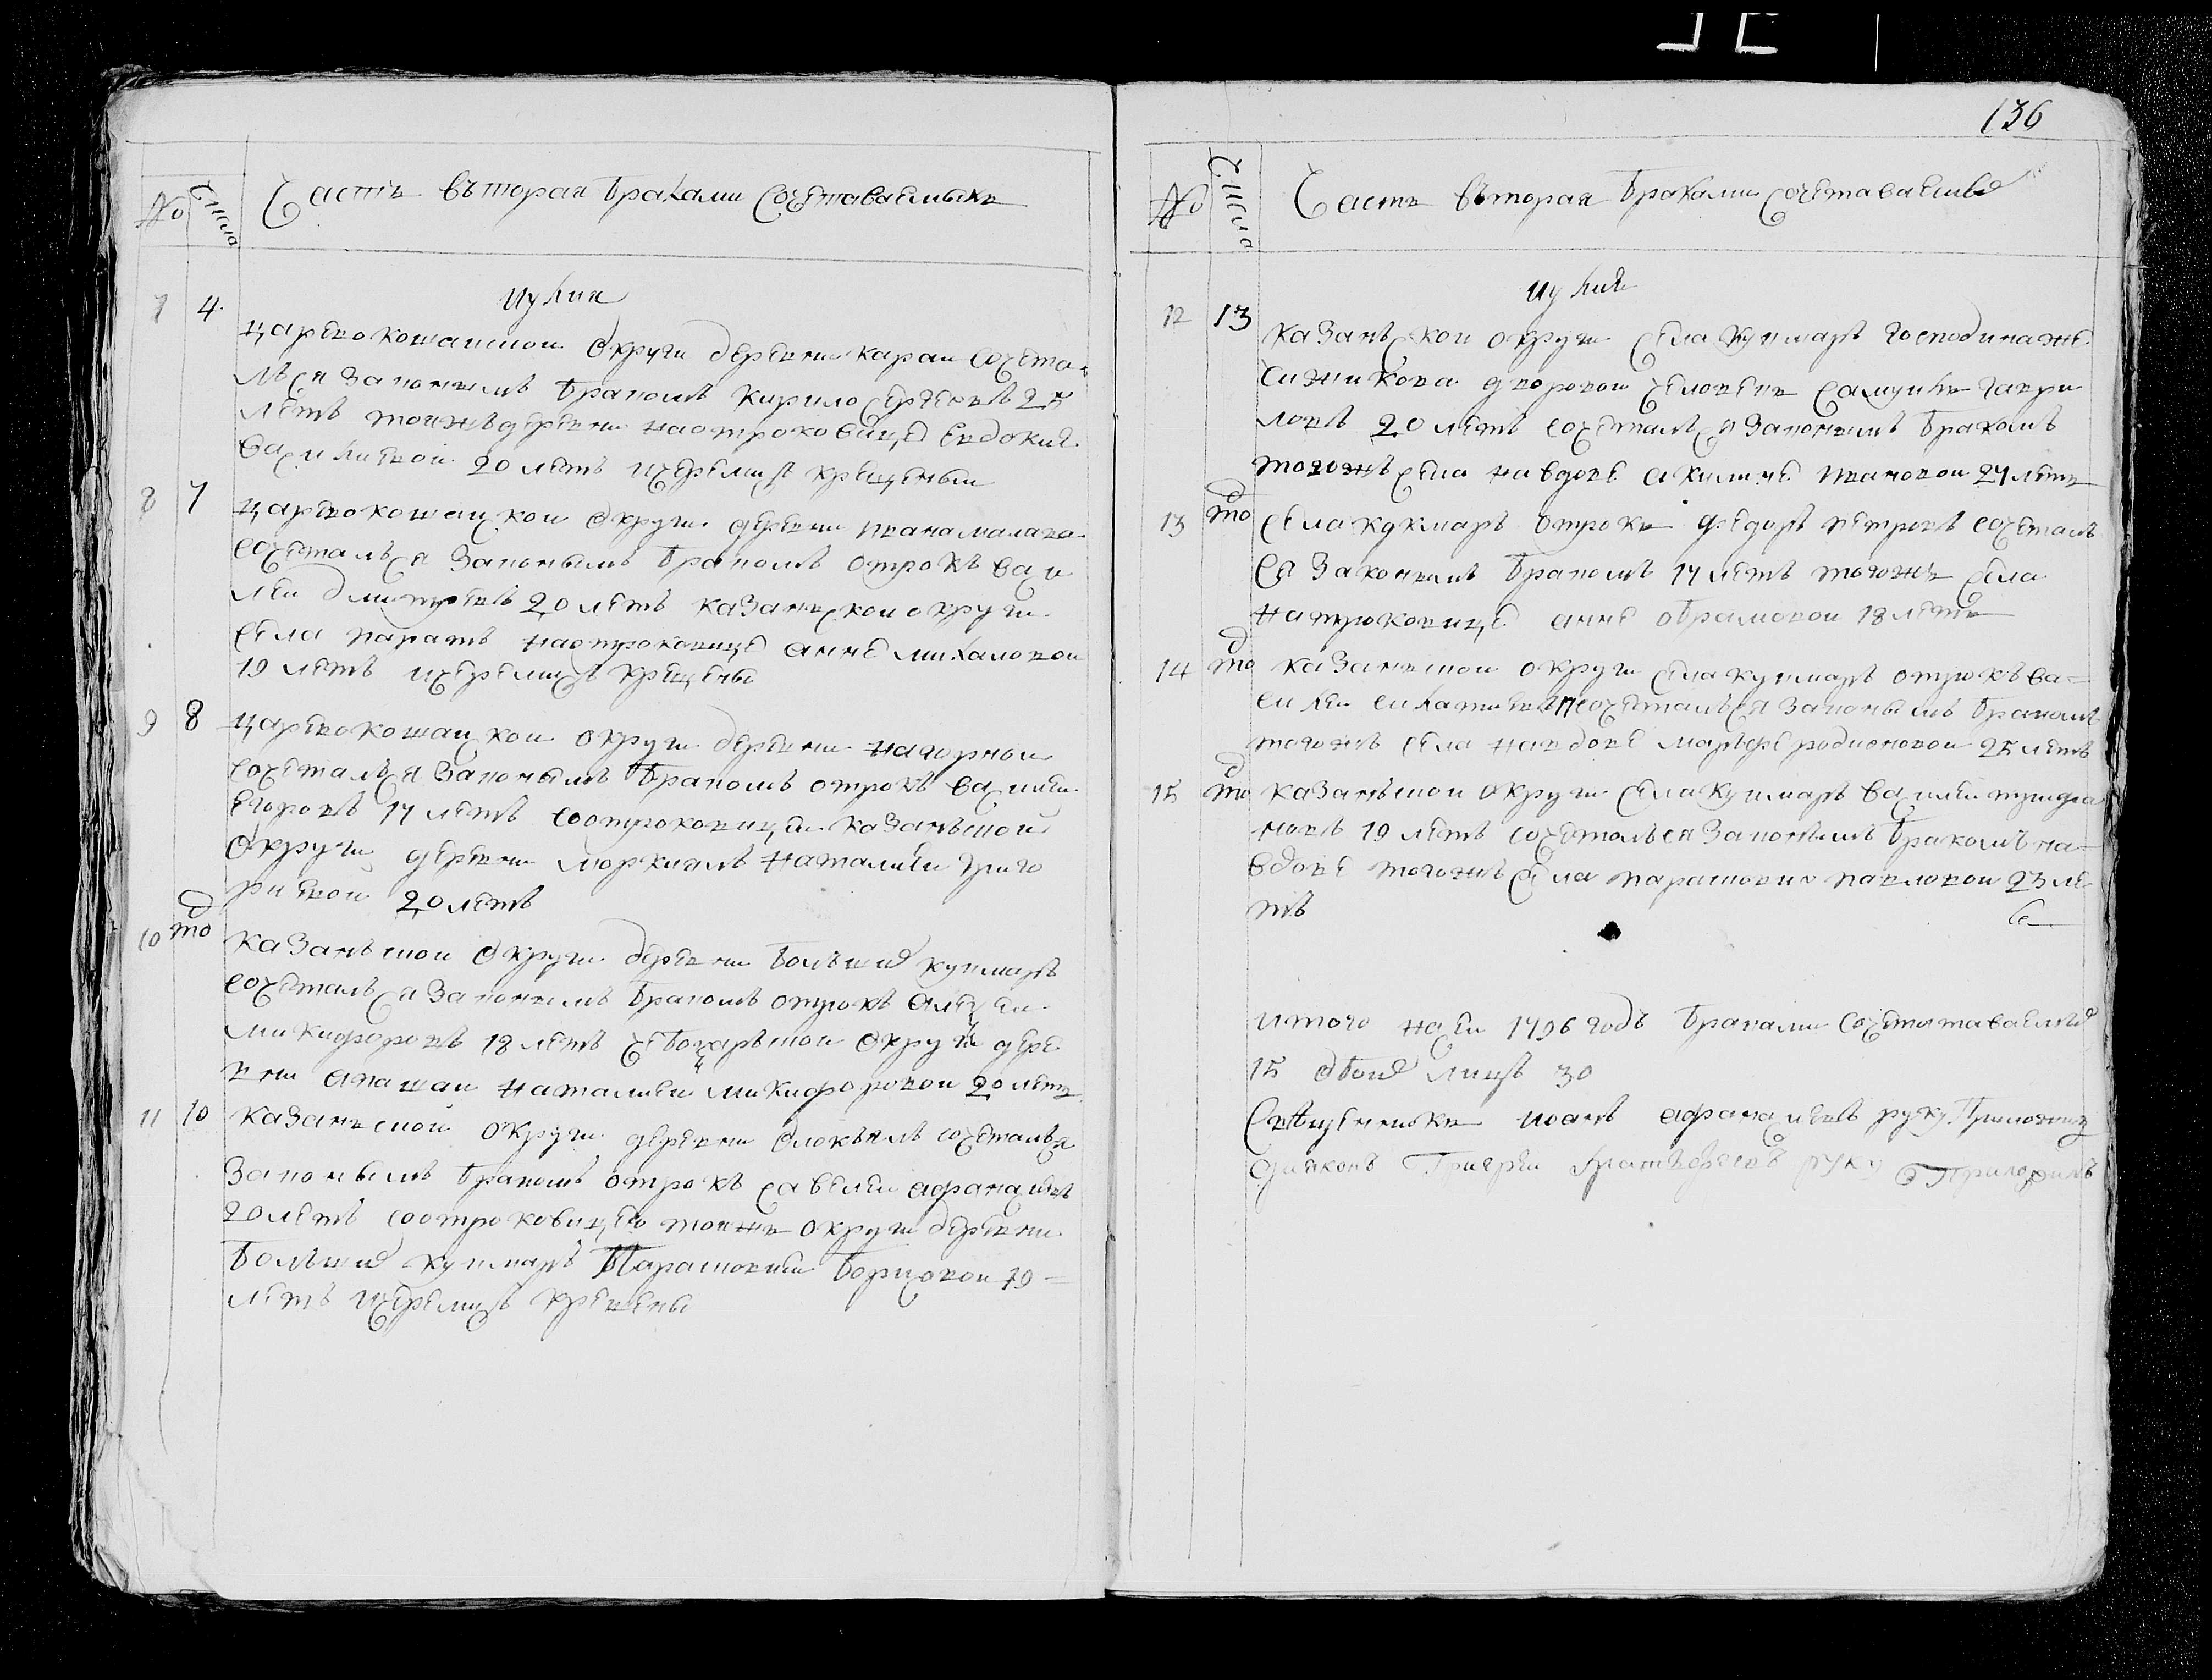 № Числа Часть вторая браками сочетаваемыхъ
Иулия
7 4 Царевококшаиской округи деревни Караи сочета
лъся законымъ бракомъ Кирило Сергеевъ 25
летъ тоижъ деревни на отроковице Евдокие
Васильевой 20 летъ ис черемисъ крещеныи
8 7 Царевококшаиской округи деревни Ивана Малаго
сочеталъся законымъ бракомъ отрокъ Васи
леи Дмитреевъ 20 летъ Казанской округи
села Паратъ на отроковице Анне Михаловой
19 летъ ис черемисъ крещены
9 8 Царевококшаиской округи деревни Нагорной
сочеталъся законымъ бракомъ отрокъ Василеи
Егоровъ 17 летъ со отроковицеи Казанской
округи деревни Моркиялъ Наталиеи Григо
риевой 20 летъ
10 то Казанской округи деревни Большие Кукмаръ
сочеталъся законымъ бракомъ отрокъ Алексеи
Микифоровъ 18 летъ Чебоксарьской округи дере
вни Апашаи Наталиеи Микифоровой 20 летъ
11 10 Казанской округи деревни сочеталъся
законымъ бракомъ отрокъ Савелеи Афанасиевъ
20 летъ со отроковицею тоижъ округи деревни
Большие Кукмаръ Парасковии Борисовой 19
летъ ис черемисъ крещены
136
№ Числа Часть вторая браками сочетаваемые
Иулия
12 13 Казанской округи села Кукмаръ господина Же
дворовои человекъ Самуилъ Гаври
ловъ 20 летъ сочеталъся законымъ бракомъ
тогожъ села на вдове Акилине Ивановой 27 летъ
13 то Села Кукмаръ отрокъ Федоръ Петровъ сочеталъ
ся законымъ бракомъ 17 летъ тогожъ села
на троковице Анне Обрамовой 18 летъ
14 то Казанской округи села Кукмаръ отрокъ Ва=
силеи 17 сочеталъся законымъ бракомъ
тогожъ села на вдове Марфе Родионовой 25 летъ
15 то Казанской округи села Кукмаръ Василеи
новъ 19 летъ сочеталъся законымъ бракомъ на=
вдове тогожъ села Парасковия Павловой 23 ле
тъ
итого на сеи 1796 годъ браками сочетатаваемые
15 обоие лицъ 30
Священникъ Иоанъ Афанасиевъ руку приложилъ
диаконъ Григреи руку приложилъ